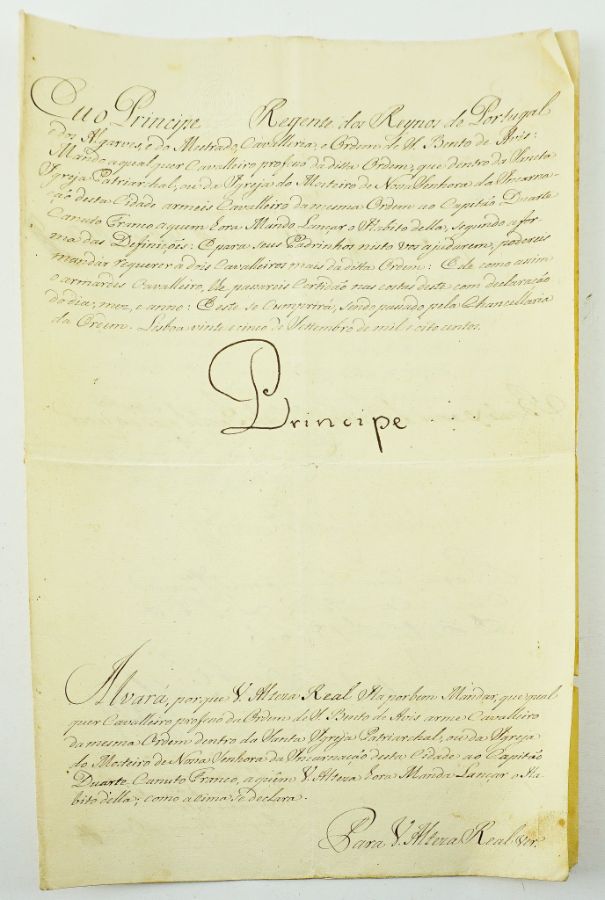 Euo Principe Regente dos Reynos de Portugal
e dos Algarves, e do Mestrado, Cavallaria, e Ordem de S. Bento de Avis:
Mando a qualquer Cavalleiro professo da ditta Ordem, que dentro da Santa
Igreja Patriarchal, ou da Igreja do Mosteiro de Nossa Senhora da Incarna-
ção desta Cidade armeis Cavalleiro da mesma Ordem ao Capitão Duarte
Canuto Franco a quem Hora Mando Lançar o Habito della, segundo a fór-
ma das Definições: E para seus Padrinhos nisto vos ajudarem, podereis
mandar requerer a dois Cavalleiros mais da ditta Ordem: E de como assim
o armardes Cavalleiro, lhe passareis Certidão nas costas deste com declaração
do dia, mez, e anno: E este se cumprirá, sendo passado pela Chancellaria
da Ordem. Lisboa vinte e cinco de Settembro de mil e oito centos.
Principe
Alvará, porque V. Alteza Real Ha por bem Mandar, que qual
quer Cavalleiro professo da Ordem de S. Bento de Avis arme Cavalleiro
da mesma Ordem dentro da Santa Igreja Patriarchal, ou da Igreja
do Mosteiro de Nossa Senhora da Incarnação desta Cidade ao Capitão
Duarte Canuto Franco, a quem V. Alteza Hora Manda Lançar o Ha-
bito della; como acima se declara.
Para V. Alteza Real ver.